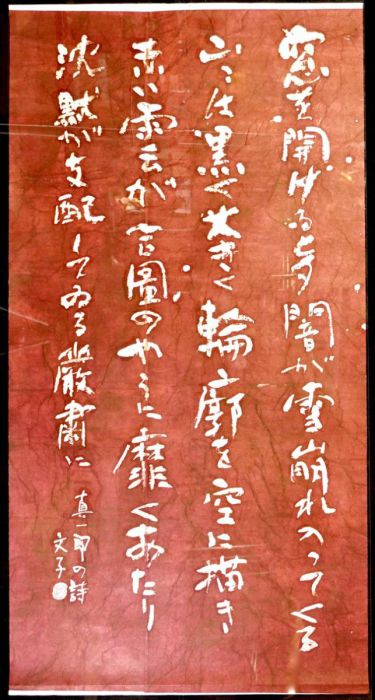 窓を開けると闇が雪崩れ入ってくる
山々は黒く大きく輪廓を空に描き
赤い雲が合圖のやうに靡くあたり
沈黙が支配してゐる嚴肅に
真一郎の詩
文子